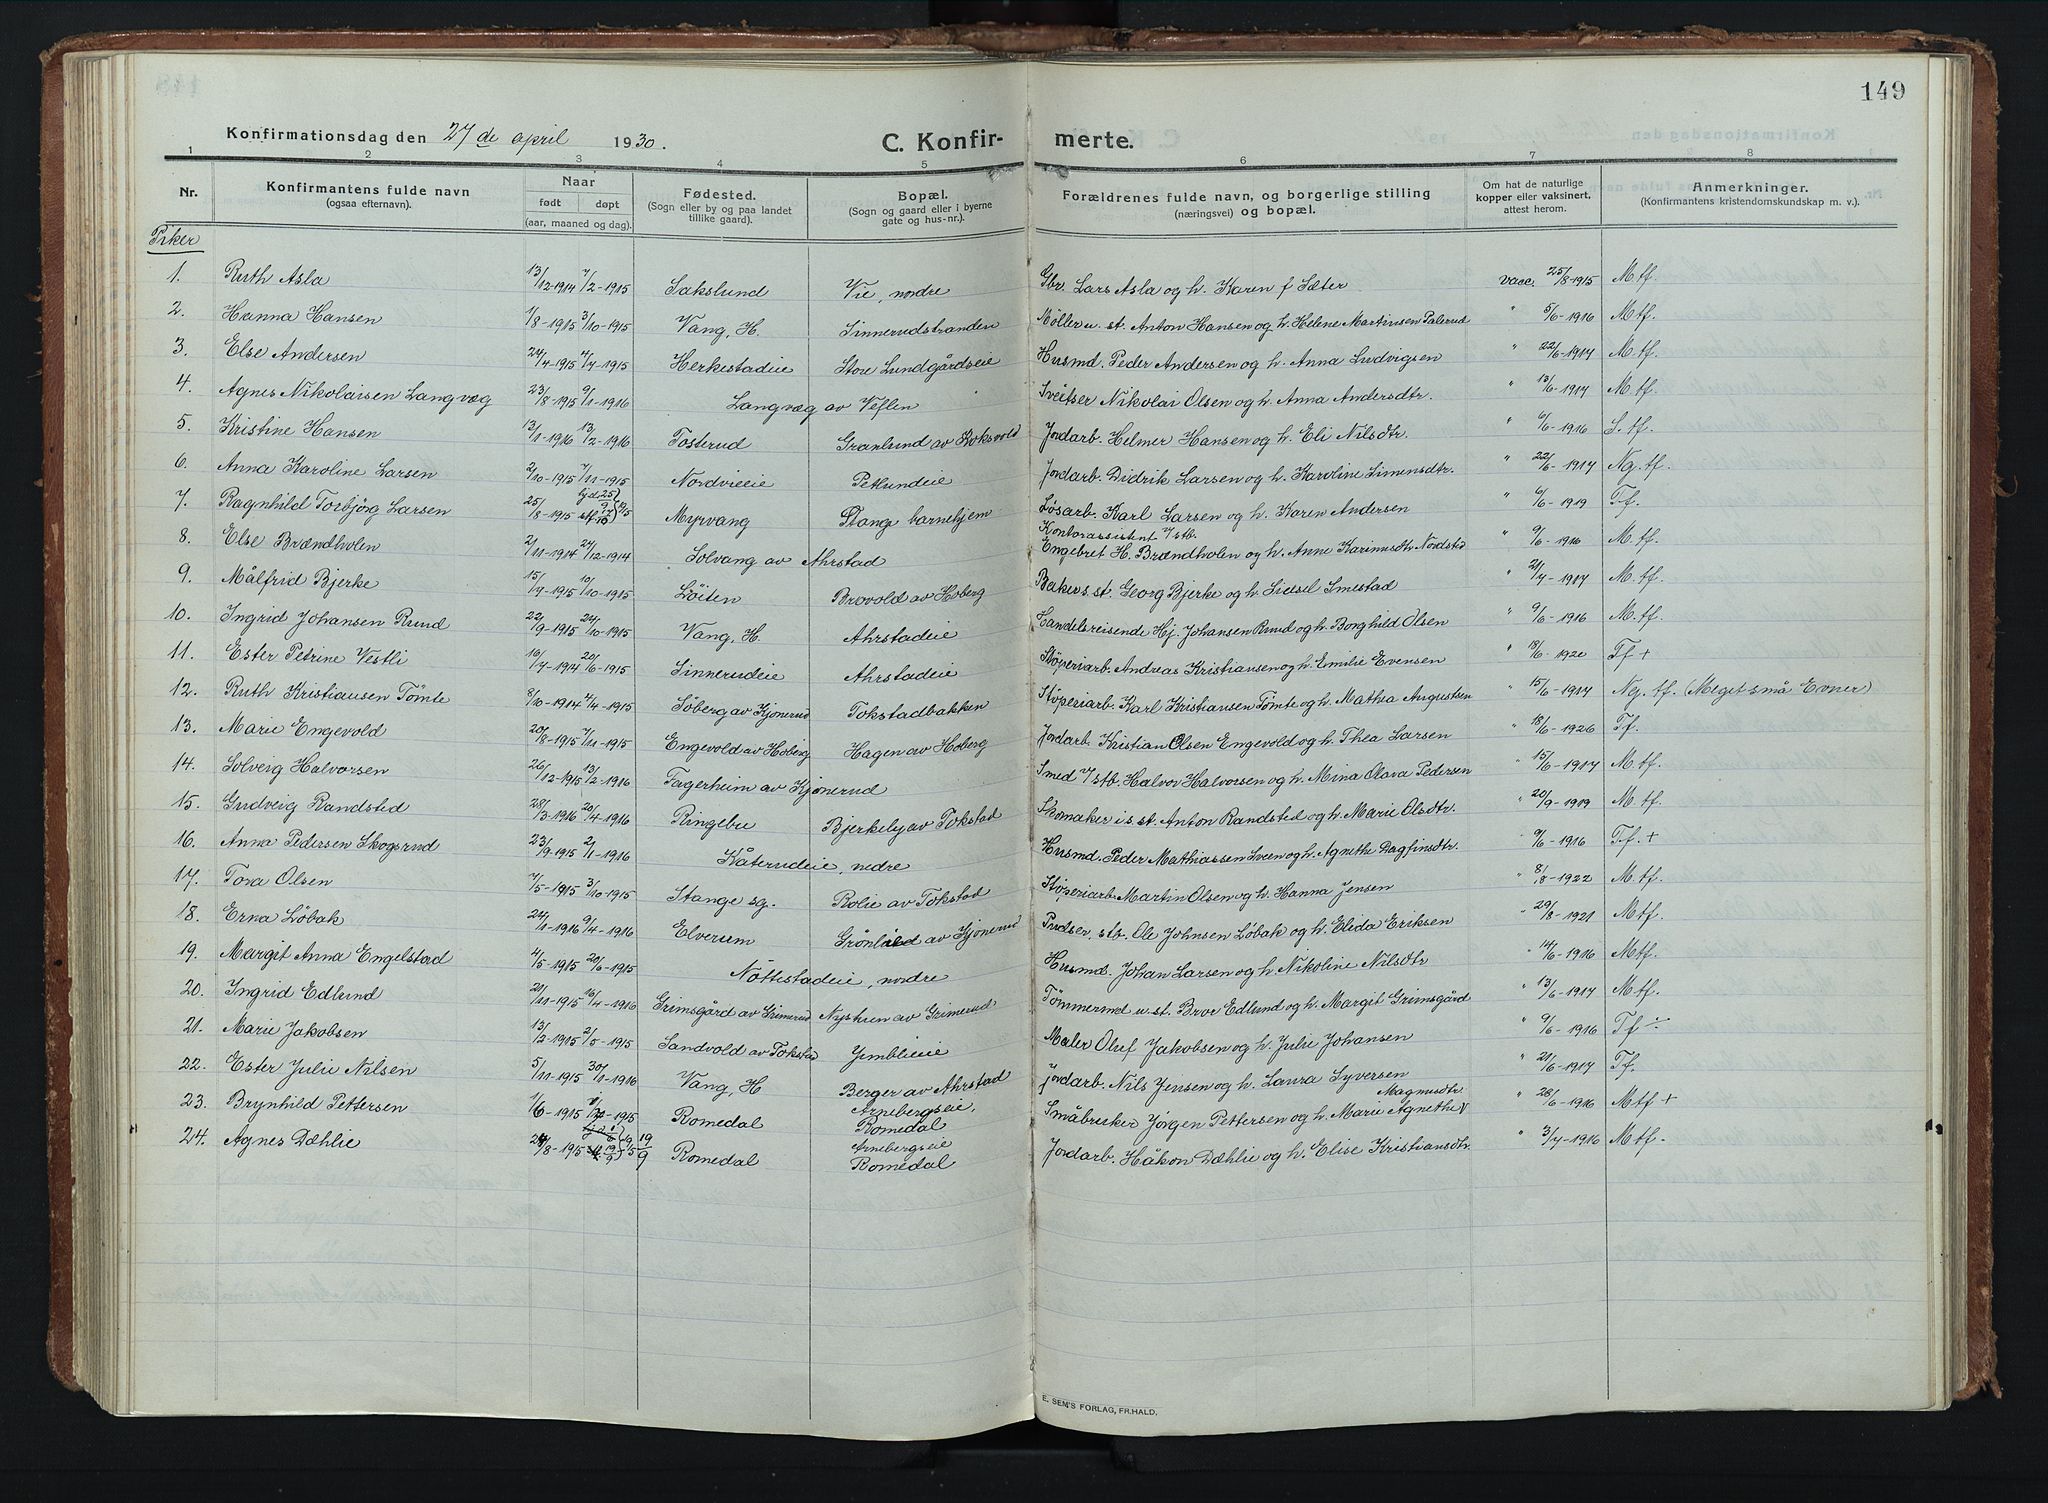 149
Konfirmationsdag den 27 de april 1930.
C. Konfirmerte.
1 2 3 4 5 6 7 8
Nr. Konfirmantens fulde navn (ogsaa efternavn). Naar født døpt (aar, maaned og dag). Fødested. (Sogn eller by og paa landet tillike gaard). Bopæl. (Sogn og gaard eller i byerne gate og hus-nr.). Forældrenes fulde navn, og borgerlige stilling (næringsvei) og bopæl. Om hat de naturlige kopper eller vaksinert, attest herom. Anmerkninger. (Konfirmantens kristendomskundskap m. v.).
Piker
1. Ruth Asla 13/12-1914 7/2-1915 Sakslund Vie, nordre Gbr. Lars Asla og h. Karen f Sæter vacc. 25/8-1915 M.tf.
2. Hanna Hansen 1/8-1915 3/10-1915 Vang, H. Sinnerudstranden Møller u. st. Anton Hansen og h. Helene Martinsen Palerud " 5/6-1916 Mtf.
3. Else Andersen 24/4-1915 4/7-1915 Herkestadeie Store Lundgårdseie Husmd. Peder Andersen og h. Anna Ludvigsen " 22/6-1917 M.tf.
4. Agnes Nikolaisen Langvæg 23/8-1915 9/1-1916 Langvæg av Veflen Sveitser Nikolai Olsen og h. Anna Andersdtr. " 13/6-1917 M.tf.
5. Kristine Hansen 13/1-1916 13/2-1916 Tosterud Granlund av Koksvold Jordarb. Helmer Hansen og h. Eli Nilsdtr. " 6/6-1916 S.tf.
6. Anna Karoline Larsen 2/10-1915 7/11-1915 Nordvieeie Petlundeie Jordarb. Didrik Larsen og h. Karoline Simensdtr. " 22/6-1917 Ng.tf.
7. Ragnhild Torbjörg Larsen 25/8-1915 Myrvang Stange barnehjem Løsarb. Karl Larsen og h. Karen Andersen " 6/6-1919 Tf.
8. Else Brændholen 2/11-1914 27/12-1914 Solvang av Ahrstad Kontorassistent v/stb. Engebret H. Brændholen og h. Anne Karinusdtr Nordsted " 9/6-1916 M.tf.
9. Målfrid Bjerke 15/7-1915 10/10-1915 Löiten Brovold av Hoberg Baker s. st. Georg Bjerke og h. Lisesl Smestad " 21/7-1917 M.tf.
10. Ingrid Johansen Ruud 22/9-1915 24/10-1915 Vang, H. Ahrstadeie Handelsreisende Hj. Johansen Ruud og h. Borghild Olsen " 9/6-1916 M.tf.
11. Ester Petrine Vestli 16/7-1914 20/6-1915 Sinnerudeie Ahrstadeie Støperiarb. Andreas Kristiansen og h. Emilie Evensen " 18/6-1920 Tf +
12. Ruth Kristiansen Tömte 8/10-1914 4/4-1915 Söberg av Kjonerud Tokstadbakken Støperiarb. Karl Kristiansen Tömte og h. Mathea Augustsen " 15/6-1917 Ng. tf. (Meget små Evner)
13. Marie Engevold 20/8-1915 7/11-1915 Engevold av Hoberg Hagen av Hoberg Jordarb. Kristian Olsen Engevold og h. Thea Larsen " 18/6-1926 Tf.
14. Solveig Halvorsen 26/12-1915 13/2-1916 Fagerheim av Kjonerud Smed v/stb. Halvor Halvorsen og h. Mina Olava Pedersen " 15/6-1917 M.tf.
15. Gudveig Randsted 28/3-1916 20/4-1916 Ringebu Bjerkely av Tokstad Skomaker i s. st. Anton Randsted og h. Marie Olsdtr. " 20/9-1919 M.tf.
16. Anna Pedersen Skogsrud 23/9-1915 2/1-1916 Kåterudeie, nedre Husmd. Peder Mathiassen Sveen og h. Agnethe Dagfinsdtr. " 9/6-1916 Tf. +
17. Tora Olsen 7/5-1915 3/10-1915 Stange sg. Rolie av Tokstad Støperiarb. Martin Olsen og h. Hanna Jensen " 8/8-1922 M.tf.
18. Erna Löbak 24/1-1916 9/4-1916 Elverum Grönlied av Kjonerud Pudser, stb. Ole Johnsen Löbak og h. Elida Eriksen " 29/8-1921 Mtf.
19. Margit Anna Engelstad 4/5-1915 20/6-1915 Nöttestadeie, nordre Husmd. Johan Larsen og h. Nikoline Nilsdtr " 14/6-1916 Mtf.
20. Ingrid Edlund 21/11-1915 16/4-1916 Grimsgård av Grimerud Nystuen av Grimerud Tömmermd u. st. Bror Edlund og h. Margit Grimsgård " 13/6-1917 Mtf.
21. Marie Jakobsen 13/2-1915 2/5-1915 Sandvold av Tokstad Jemblieie Maler Oluf Jakobsen og h. Julie Johansen " 9/6-1916 Tf ÷
22. Ester Julie Nilsen 5/11-1915 30/1-1916 Vang, H Berger av Ahrstad Jordarb. Nils Jensen og h. Laura Syversen " 21/6-1917 Tf.
23. Brynhild Pettersen 1/6-1915 Romedal Arnebergseie, Romedal Småbruker Jörgen Pettersen og h. Marie Agnethe Magnusdtr " 28/6-1916 Mtf +
24. Agnes Dæhlie Romedal Arnebergseie Romedal Jordarb. Håkon Dæhlie og h. Elise Kristiansdtr. " 3/7-1916 Mtf.
E. SEM'S FORLAG, FR.HALD.